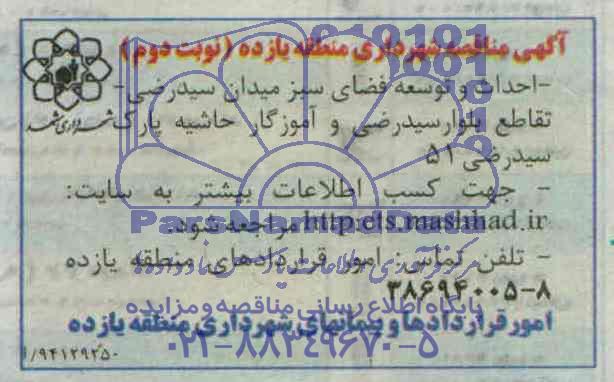 آگهی مناقصه شهرداری منطقه یازده (نوبت دوم)
-احداث و توسعه فضای سبز میدان سیدرضی-
تقاطع بلوارسیدرضی و آموزگار حاشیه پارک
سیدرضی ۵۱
- جهت کسب اطلاعات بیشتر به سایت:
http:cts.mashhad.ir مراجعه شود.
- تلفن تماس: امور قراردادهای منطقه یازده
۳۸۶۹۴۰۰۵-۸
امور قراردادها و پیمانهای شهرداری منطقه یازده
/۹۴۱۲۹۲۵۰
شهرداری مشهد
ParsNamadData
پایگاه اطلاع رسانی مناقصه و مزایده
۰۲۱-۸۸۳۴۹۶۷۰-۵